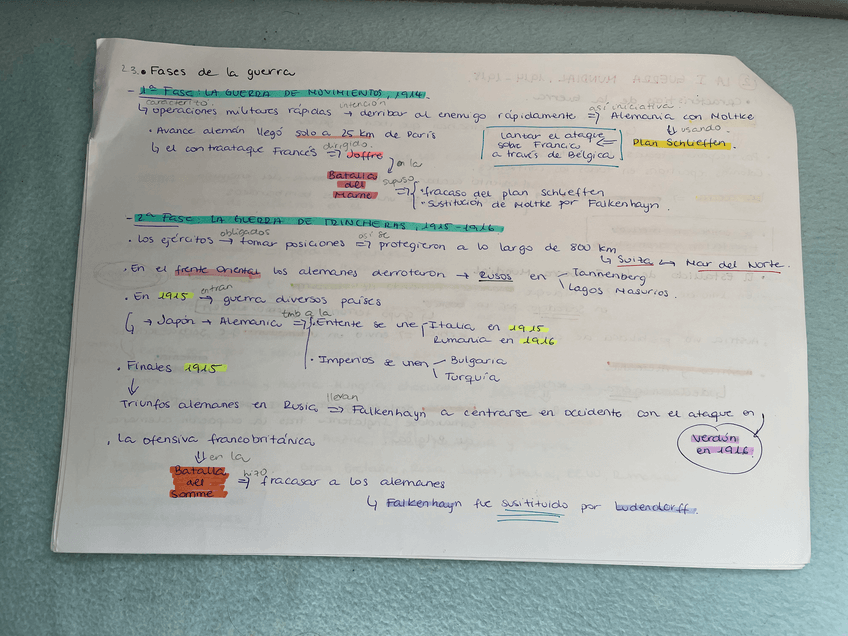 2.3. • Fases de la guerra
- 1ª Fase: LA GUERRA DE MOVIMIENTOS, 1914.
caracterizó intención así iniciativa
↳ operaciones militares rápidas → derribar al enemigo rápidamente => Alemania con Moltke
• Avance alemán llegó solo a 25 km de París
usando
Lanzar el ataque sobre Francia a través de Bélgica <= Plan Schlieffen.
dirigido
↳ el contraataque Francés => Joffre
en la
Batalla del Marne
supuso
=> • fracaso del plan Schlieffen
• sustitución de Moltke por Falkenhayn.
- 2ª Fase: LA GUERRA DE TRINCHERAS, 1915-1916
obligados así se
• Los ejércitos → tomar posiciones => protegieron a lo largo de 800 km
↳ Suiza ↔ Mar del Norte.
• En el frente Oriental los alemanes derrotaron → Rusos en Tannenberg
Lagos Masurios.
entran
• En 1915 → guerra diversos países
tmb a la
↳ → Japón → Alemania => • Entente se une Italia en 1915
Rumania en 1916
• Imperios se unen Bulgaria
Turquía
• Finales 1915
↓
llevan
Triunfos alemanes en Rusia => Falkenhayn a centrarse en occidente con el ataque en
Verdún en 1916.
• La ofensiva francobritánica
en la
Batalla del Somme
hizo
=> fracasar a los alemanes
↳ Falkenhayn fue susitituido por Ludendorff.